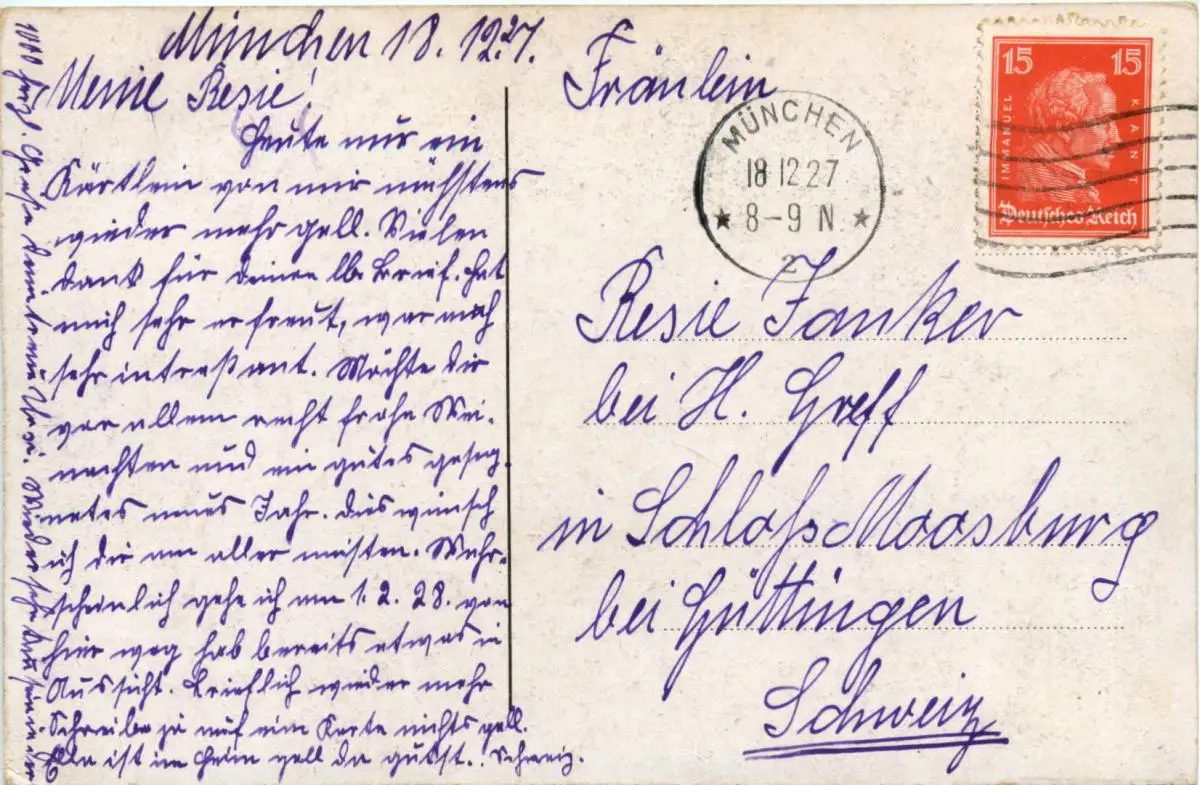 München 18. 12.27.
Meine Resie!
Heute nur ein
Kärtlein von mir nächstens
wieder mehr gell. Vielen
dank für deinen lb. Brief. Hat
mich sehr erfreut, war auch
sehr intreßant. Möchte dir
vor allem recht frohe Wei-
nachten und ein gutes geseg.
netes neues Jahr. dies wünsch
ich dir am aller meisten. Wahr-
scheinlich gehe ich am 1. 2. 28. von
hier weg hab bereits etwas in
Aussicht. Brieflich wieder mehr
Schreibe ja auf eine Karte nichts gell.
ist im Heim gell da Schweiz.
1000 herzl. Grüße
Fräulein
Resie Janker
bei H. Greff
in Schloß Moosburg
bei Güttingen
Schweiz
MÜNCHEN
18 12 27
8-9 N.
2
15 15
IMMANUEL KANT
Deutsches Reich